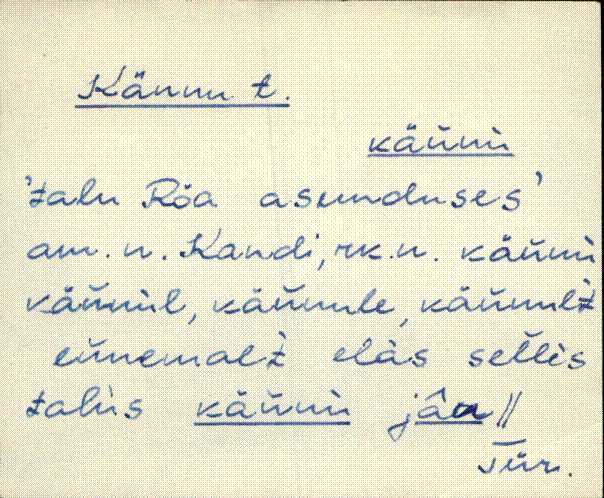 Kännu t.
kän̆nù
'talu Rõa asunduses'
am. n. Kandi, rk. n. kän̆nù
kän̆nùl, kän̆nule, kän̆nult̀
ennemalt̀ elàs selles
talùs kän̆nù jâa ||
Tür.